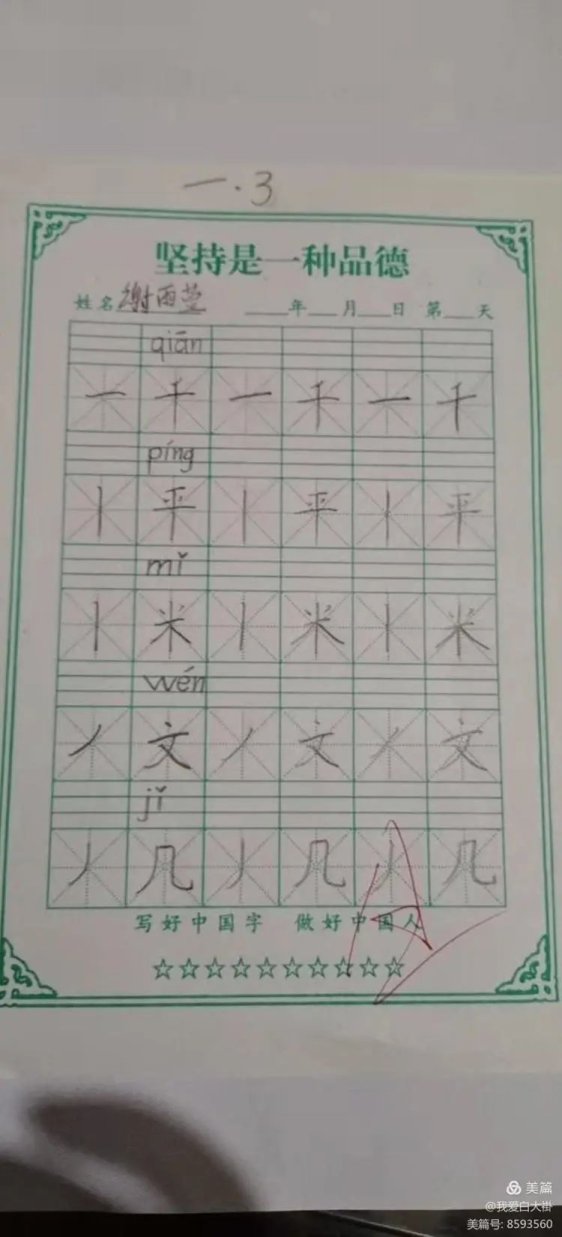 一.3
坚持是一种品德
姓名谢雨莹 ____年___月___日 第___天
qiān
一 千 一 千 一 千
píng
丨 平 丨 平 丨 平
mǐ
丨 米 丨 米 丨 米
wén
丿 文 丿 文 丿 文
jǐ
丿 几 丿 几 丿 几
写好中国字 做好中国人
☆☆☆☆☆☆☆☆☆☆
美篇
@我爱白大褂
美篇号: 8593560